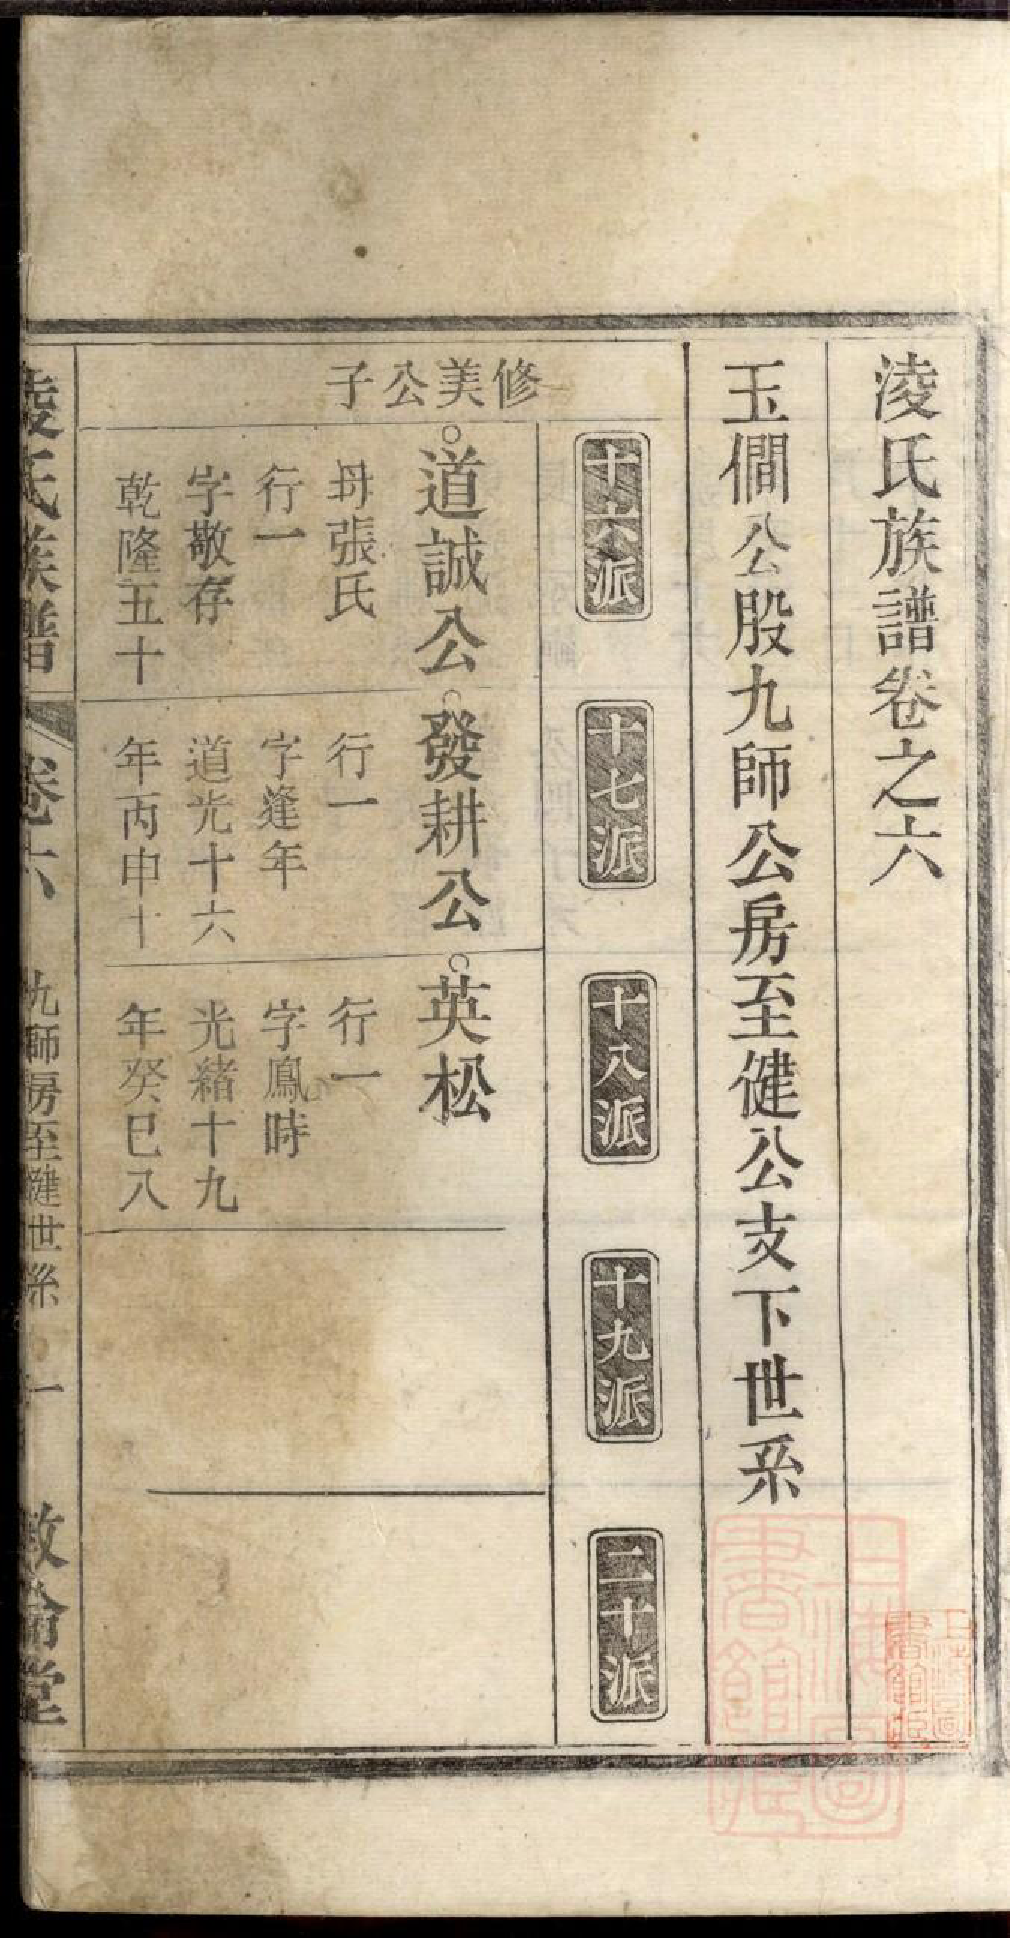 淩氏族譜卷之六
玉僩公股九師公房至健公支下世系
十六派
十七派
十八派
十九派
二十派
修美公子
道誠公
母張氏
行一
字敬存
乾隆五十
發耕公
行一
字逢年
道光十六
年丙申十
英松
行一
字鳳時
光緒十九
年癸巳八
淩氏族譜
卷六
九師房至健世系
一
敦倫堂
上海圖書館藏
上海圖書館藏